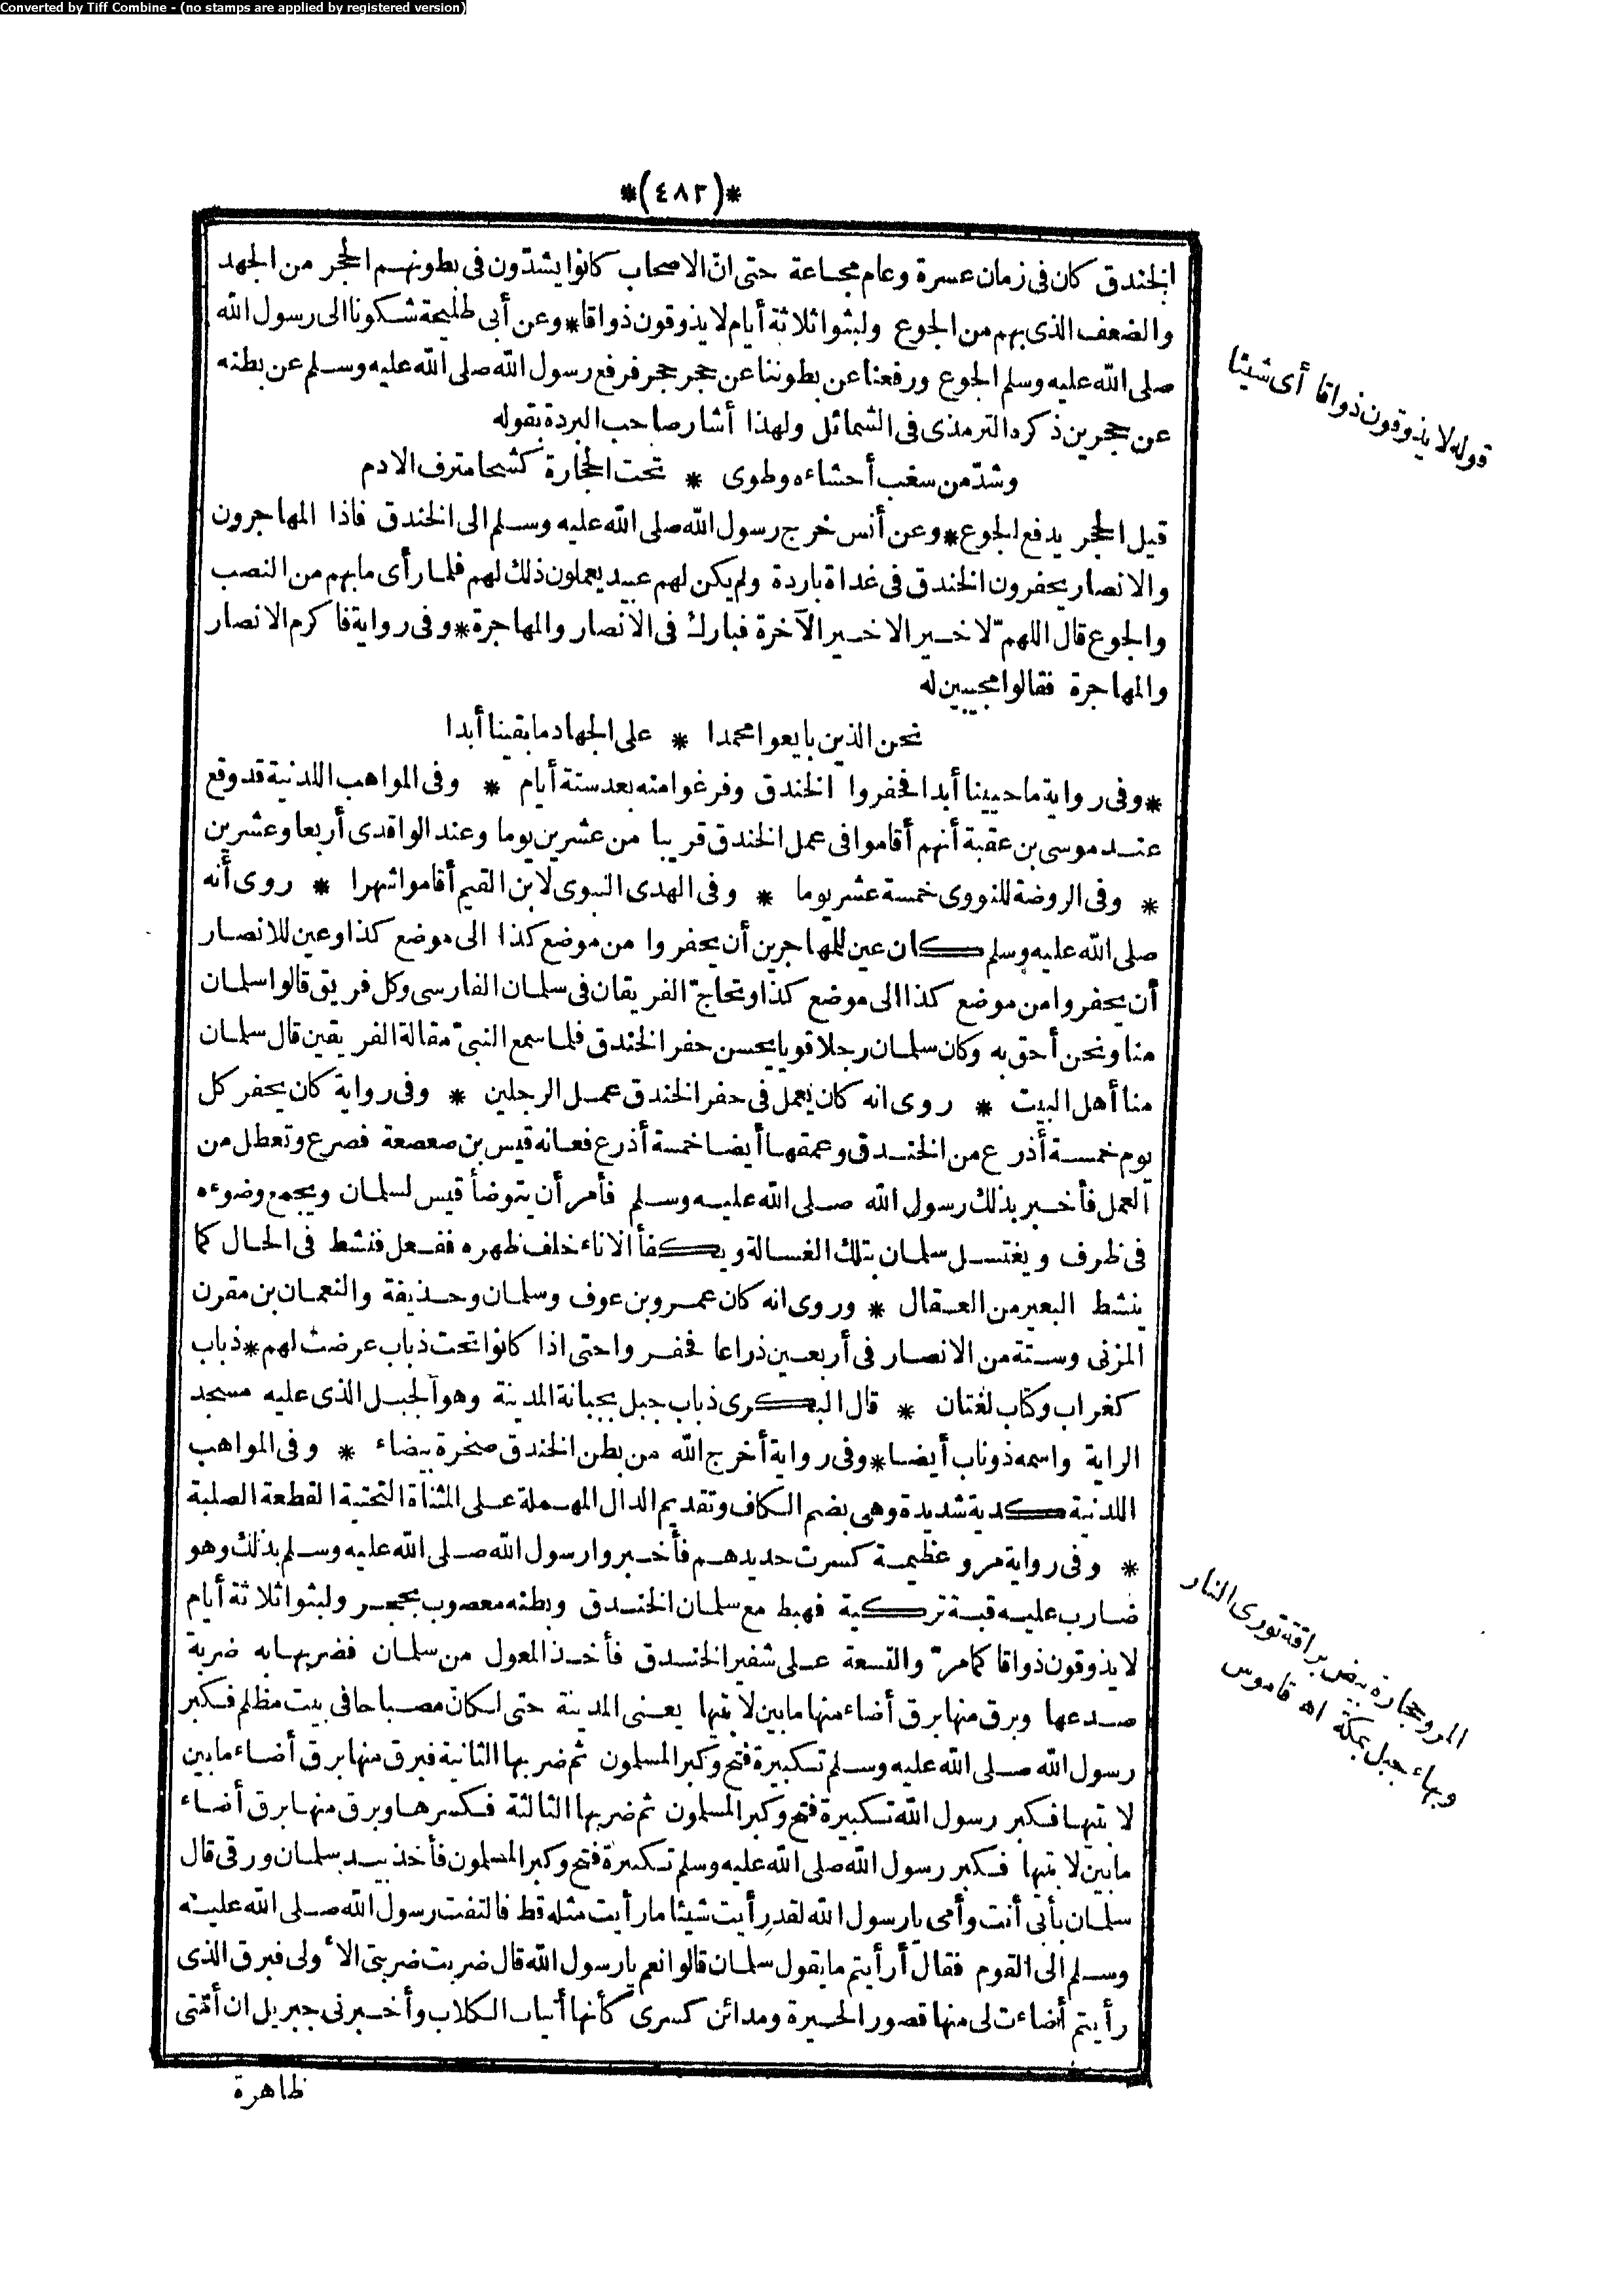 Converted by Tiff Combine - (no stamps are applied by registered version)
*(٤٨٢)*
الخندق كان فى زمان عسرة وعام مجاعة حتى انّ الاصحاب كانوا يشدّون فى بطونهم الحجر من الجهد
والضعف الذى بهم من الجوع ولبثوا ثلاثة أيام لا يذوقون ذواقا * وعن أبى طليحة شكونا الى رسول الله
صلى الله عليه وسلم الجوع ورفعنا عن بطوننا عن حجر حجر فرفع رسول الله صلى الله عليه وسلم عن بطنه
عن حجرين ذكره الترمذى فى الشمائل ولهذا أشار صاحب البردة بقوله
وشدّ من سغب أحشاءه وطوى * تحت الحجارة كشحا مترف الادم
قيل الحجر يدفع الجوع * وعن أنس خرج رسول الله صلى الله عليه وسلم الى الخندق فاذا المهاجرون
والانصار يحفرون الخندق فى غداة باردة ولم يكن لهم عبيد يعملون ذلك لهم فلما رأى ما بهم من النصب
والجوع قال اللهمّ لا خير الا خير الآخرة فبارك فى الانصار والمهاجرة * وفى رواية فاكرم الانصار
والمهاجرة فقالوا مجيبين له
نحن الذين بايعوا محمدا * على الجهاد ما بقينا أبدا
* وفى رواية ما حيينا أبدا فحفروا الخندق وفرغوا منه بعد ستة أيام * وفى المواهب اللدنية قد وقع
عند موسى بن عقبة أنهم أقاموا فى عمل الخندق قريبا من عشرين يوما وعند الواقدى أربعا وعشرين
* وفى الروضة للنووى خمسة عشر يوما * وفى الهدى النبوى لابن القيم أقاموا شهرا * روى أنه
صلى الله عليه وسلم كان عين للمهاجرين أن يحفروا من موضع كذا الى موضع كذا وعين للانصار
أن يحفروا من موضع كذا الى موضع كذا وتحاجّ الفريقان فى سلمان الفارسى وكل فريق قالوا سلمان
منا ونحن أحق به وكان سلمان رجلا قويا يحسن حفر الخندق فلما سمع النبىّ مقالة الفريقين قال سلمان
منا أهل البيت * روى انه كان يعمل فى حفر الخندق عمل الرجلين * وفى رواية كان يحفر كل
يوم خمسة أذرع من الخندق وعمقها أيضا خمسة أذرع فعانه قيس بن صعصعة فصرع وتعطل من
العمل فأخبر بذلك رسول الله صلى الله عليه وسلم فأمر أن يتوضأ قيس لسلمان ويجمع وضوءه
فى ظرف ويغتسل سلمان بتلك الغسالة ويكفأ الاناء خلف ظهره ففعل فنشط فى الحال كما
ينشط البعير من العقال * وروى انه كان عمرو بن عوف وسلمان وحذيفة والنعمان بن مقرن
المزنى وستة من الانصار فى أربعين ذراعا فحفروا حتى اذا كانوا تحت ذباب عرضت لهم * ذباب
كغراب وكتاب لغتان * قال البكرى ذباب جبل بجبانة المدينة وهو الجبل الذى عليه مسجد
الراية واسمه ذوناب أيضا * وفى رواية أخرج الله من بطن الخندق صخرة بيضاء * وفى المواهب
اللدنية كدية شديدة وهى بضم الكاف وتقديم الدال المهملة على المثناة التحتية القطعة الصلبة
* وفى رواية مرو عظيمة كسرت حديدهم فأخبروا رسول الله صلى الله عليه وسلم بذلك وهو
ضارب عليه قبة تركية فهبط مع سلمان الخندق وبطنه معصوب بحجر ولبثوا ثلاثة أيام
لا يذوقون ذواقا كما مرّ والتسعة على شفير الخندق فأخذ المعول من سلمان فضربها به ضربة
صدعها وبرق منها برق أضاء منها ما بين لابتيها يعنى المدينة حتى لكان مصباحا فى بيت مظلم فكبر
رسول الله صلى الله عليه وسلم تكبيرة فتح وكبر المسلمون ثم ضربها الثانية فبرق منها برق أضاء ما بين
لابتيها فكبر رسول الله تكبيرة فتح وكبر المسلمون ثم ضربها الثالثة فكسرها وبرق منها برق أضاء
ما بين لابتيها فكبر رسول الله صلى الله عليه وسلم تكبيرة فتح وكبر المسلمون فأخذ بيد سلمان ورقى قال
سلمان بأبى أنت وأمى يا رسول الله لقد رأيت شيئا ما رأيت مثله قط فالتفت رسول الله صلى الله عليه
وسلم الى القوم فقال أرأيتم ما يقول سلمان قالوا نعم يا رسول الله قال ضربت ضربتى الأولى فبرق الذى
رأيتم أضاءت لى منها قصور الحيرة ومدائن كسرى كأنها أنياب الكلاب وأخبرنى جبريل ان أمّتى
ظاهرة
قوله لا يذوقون ذواقا أى شيئا
المرو حجارة بيض براقة تورى النار
وبهاء جبل بمكة اه قاموس